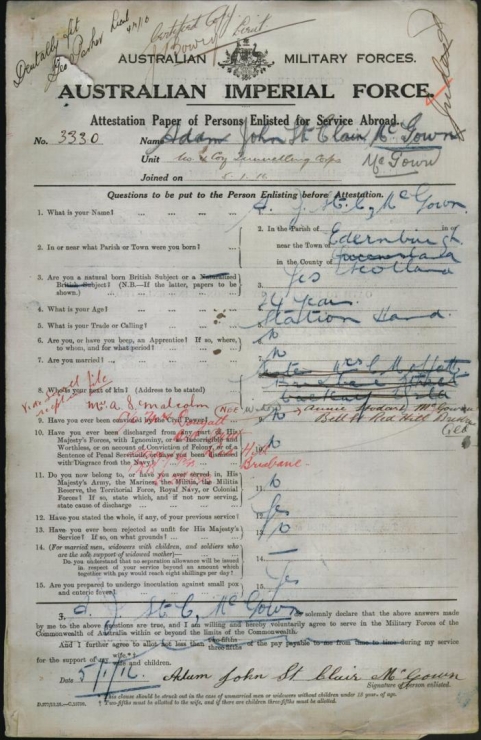 Dentally fit
Geo Parker Lieut
Certified Copy
J. Bowry Lieut
AUSTRALIAN MILITARY FORCES.
AUSTRALIAN IMPERIAL FORCE.
Attestation Paper of Persons Enlisted for Service Abroad.
No. 3330 Name Adam John St Clair McGown
Unit Coy Tunnelling Corps McGown
Joined on 5.1.16
Questions to be put to the Person Enlisting before Attestation.
1. What is your Name? ... ... ... ... 1. A. J. St. C. McGown
2. In or near what Parish or Town were you born? ... 2. In the Parish of in or
near the Town of Edernburgh
in the County of Scotland
3. Are you a natural born British Subject or a Naturalised
British Subject? (N.B.—If the latter, papers to be
shown.) ... ... ... 3. Yes
4. What is your Age? ... ... ... 4. 24 years
5. What is your Trade or Calling? ... ... 5. Station Hand.
6. Are you, or have you been, an Apprentice? If so, where,
to whom, and for what period? ... ... 6. No
7. Are you married? ... ... ... 7. No
8. Who is your next of kin? (Address to be stated)
Mrs A. S. Malcolm
Annie Woodart McGown
Bell St Red Hill
9. Have you ever been convicted by the Civil Power? 9. No
10. Have you ever been discharged from any part of His
Majesty's Forces, with Ignominy, or as Incorrigible and
Worthless, or on account of Conviction of Felony, or of a
Sentence of Penal Servitude, or have you been dismissed
with Disgrace from the Navy? 10. No
Brisbane
11. Do you now belong to, or have you ever served in, His
Majesty's Army, the Marines, the Militia, the Militia
Reserve, the Territorial Force, Royal Navy, or Colonial
Forces? If so, state which, and if not now serving,
state cause of discharge ... ... 11. No
12. Have you stated the whole, if any, of your previous service? 12. Yes
13. Have you ever been rejected as unfit for His Majesty's
Service? If so, on what grounds? ... 13. No
14. (For married men, widowers with children, and soldiers who
are the sole support of widowed mother)—
Do you understand that no separation allowance will be issued
in respect of your service beyond an amount which
together with pay would reach eight shillings per day? 14. —
15. Are you prepared to undergo inoculation against small pox
and enteric fever? ... ... 15. Yes
I, A. J. St. C. McGown do solemnly declare that the above answers made
by me to the above questions are true, and I am willing and hereby voluntarily agree to serve in the Military Forces of the
Commonwealth of Australia within or beyond the limits of the Commonwealth.
And I further agree to allot not less than two-fifths three-fifths of the pay payable to me from time to time during my service
for the support of my wife and children.
Date 5/1/16. Adam John St Clair McGown
Signature of person enlisted.
* This clause should be struck out in the case of unmarried men or widowers without children under 18 years of age.
† Two-fifths must be allotted to the wife, and if there are children three-fifths must be allotted.